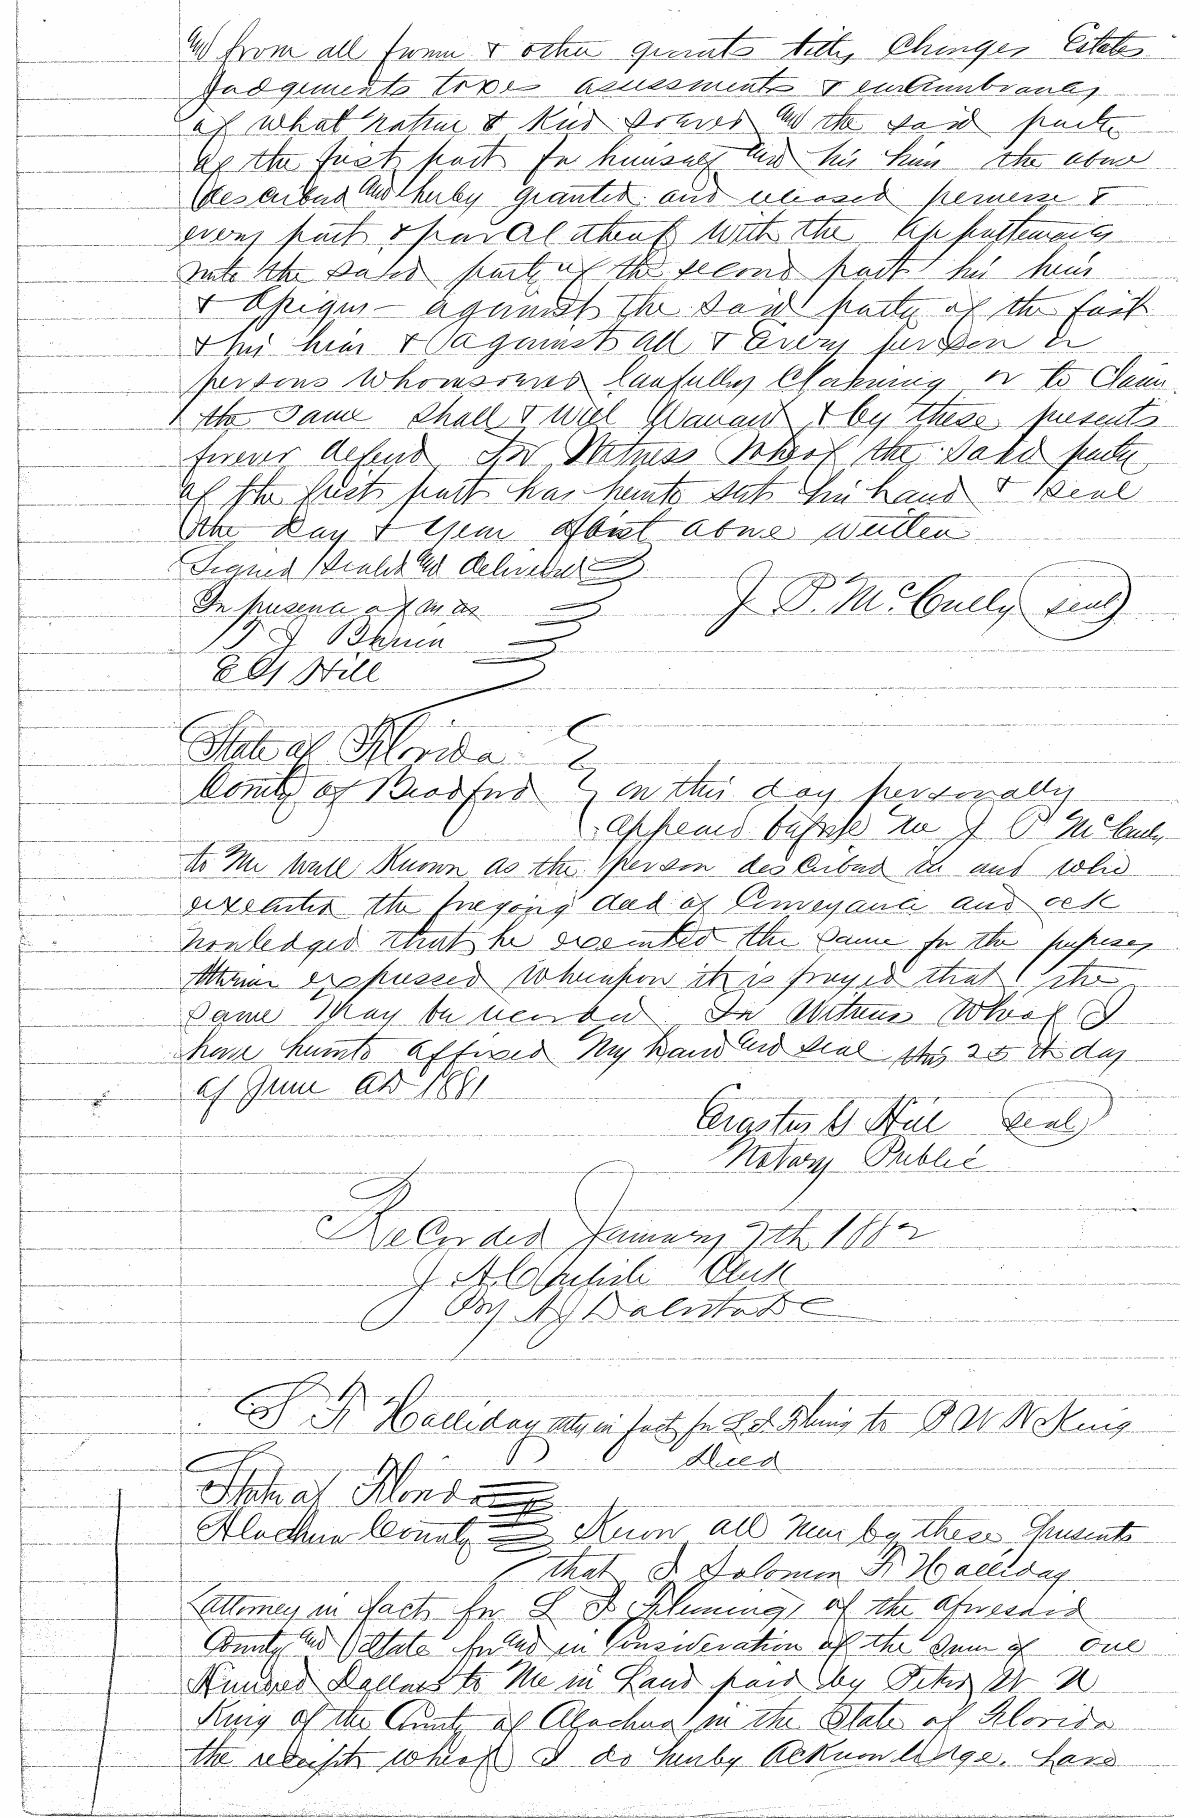 and from all former & other grants titles Charges Estates
Judgements taxes assessments & encumbrances
of what nature & Kind soever and the said party
of the first part for himself and his heirs the above
described and herby granted and released premises &
every part & parcel thereof With the appurtenances
unto the said party of the second part his heirs
& assigns – against the said party of the first
& his heirs & against all & Every person or
persons Whomsoever lawfully Claiming or to Claim
the same shall & will Warrant & by these presents
forever defend In Witness Whereof the said party
of the first part has hereunto set his hand & seal
the day & year first above written
Signed Sealed and delivered
In presence of us J. P. McCully (seal)
J
E G Hill
State of Florida
County of Bradford on this day personally
appeared before me J P McCully
to Me well Known as the person described in and who
executed the foregoing deed of Conveyance and ack
nowledged that he executed the same for the purposes
therein expressed Whereupon it is prayed that the
same May be recorded In Witness Whereof I
have hereunto affixed My hand and seal this 25th day
of June AD 1881
Erastus G Hill (seal)
Notary Public
Recorded January 7th 1882
J A Carlisle Clerk
By DC
S F Halliday atty in fact for L I Fleming to P W N King
Deed
State of Florida
Alachua County Know all Men by these Presents
that I Solomon F Halliday
Attorney in fact for L I Fleming, of the aforesaid
County and State for and in Consideration of the Sum of one
Hundred Dollars to Me in hand paid by Peter W N
King of the County of Alachua in the State of Florida
the receipt whereof I do hereby Acknowledge. have